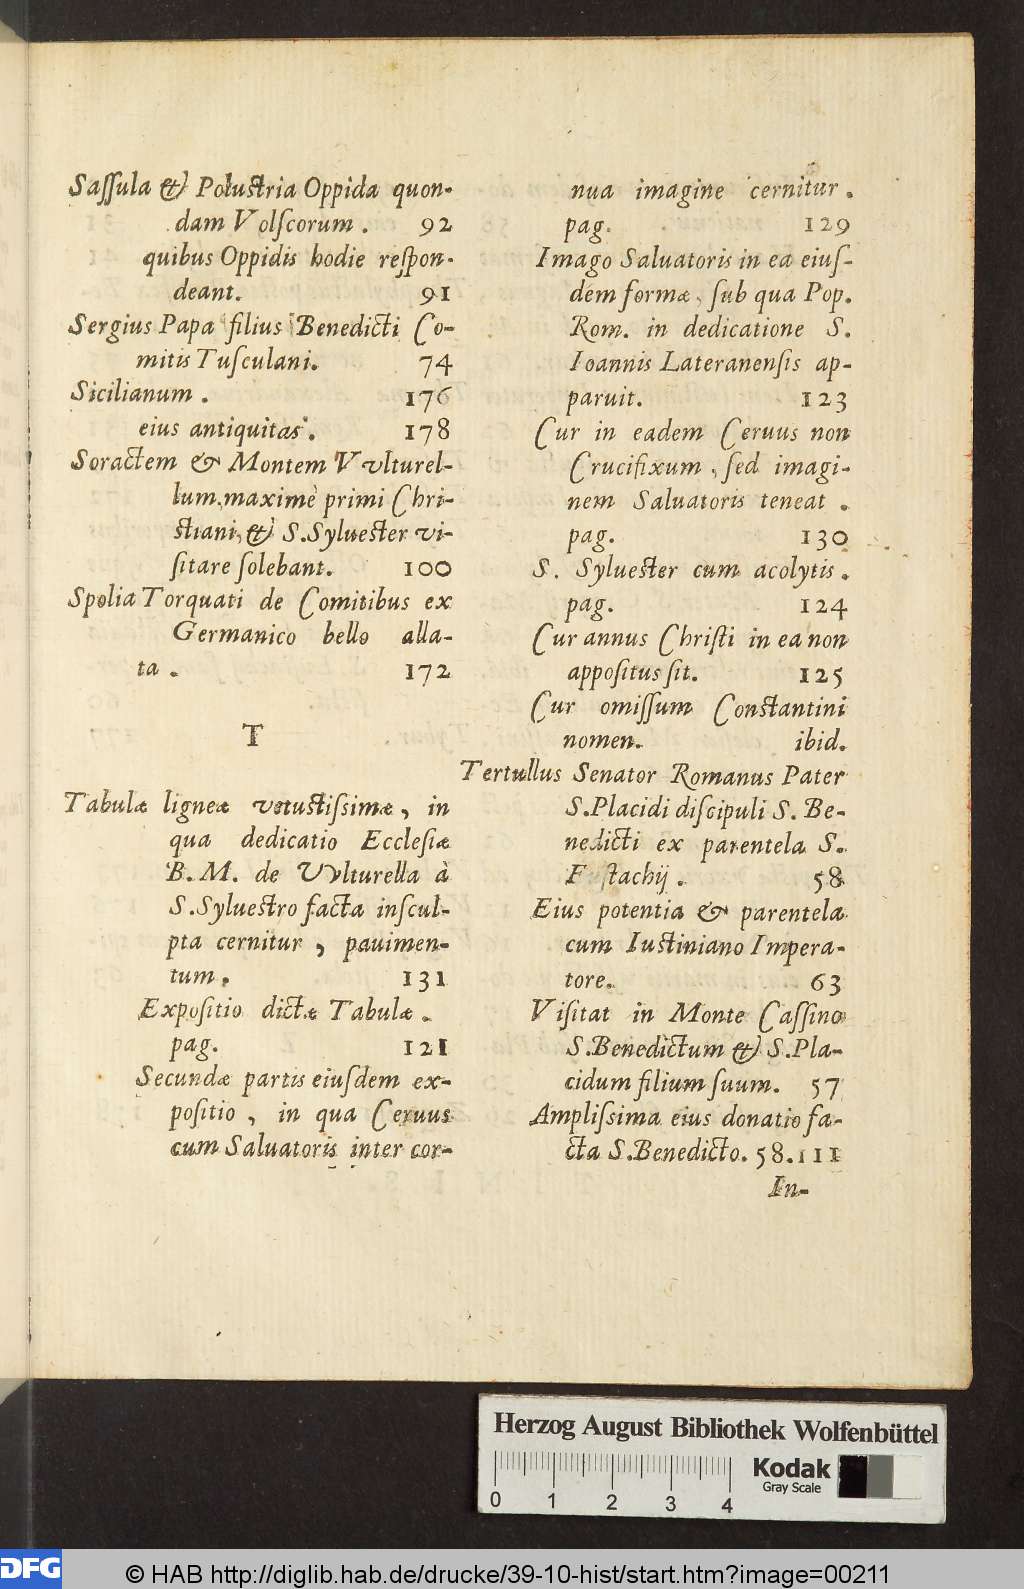 Saſſula & Polustria Oppida quon-
dam Volſcorum. 92
quibus Oppidis hodie reſpon-
deant. 91
Sergius Papa filius Benedicti Co-
mitis Tuſculani. 74
Sicilianum. 176
eius antiquitas. 178
Soractem & Montem Vvlturel-
lum, maximè primi Chri-
stiani, & S. Syluester vi-
ſitare ſolebant. 100
Spolia Torquati de Comitibus ex
Germanico bello alla-
ta. 172
T
Tabulæ ligneæ vetustiſſimæ, in
qua dedicatio Eccleſiæ
B. M. de Vvlturella à
S. Syluestro facta inſcul-
pta cernitur, pauimen-
tum. 131
Expoſitio dictæ Tabulæ.
pag. 121
Secundæ partis eiuſdem ex-
poſitio, in qua Ceruus
cum Saluatoris inter cor-
nua imagine cernitur.
pag. 129
Imago Saluatoris in ea eiuſ-
dem formæ, ſub qua Pop.
Rom. in dedicatione S.
Ioannis Lateranenſis ap-
paruit. 123
Cur in eadem Ceruus non
Crucifixum, ſed imagi-
nem Saluatoris teneat.
pag. 130
S. Syluester cum acolytis.
pag. 124
Cur annus Chriſti in ea non
appoſitus ſit. 125
Cur omiſſum Constantini
nomen. ibid.
Tertullus Senator Romanus Pater
S. Placidi diſcipuli S. Be-
nedicti ex parentela S.
58
Eius potentia & parentela
cum Iustiniano Impera-
tore. 63
Viſitat in Monte Caſſino
S. Benedictum & S. Pla-
cidum filium ſuum. 57
Ampliſſima eius donatio fa-
cta S. Benedicto. 58. 111
In-
Herzog August Bibliothek Wolfenbüttel
Kodak
Gray Scale
0 1 2 3 4
DFG © HAB http://diglib.hab.de/drucke/39-10-hist/start.htm?image=00211